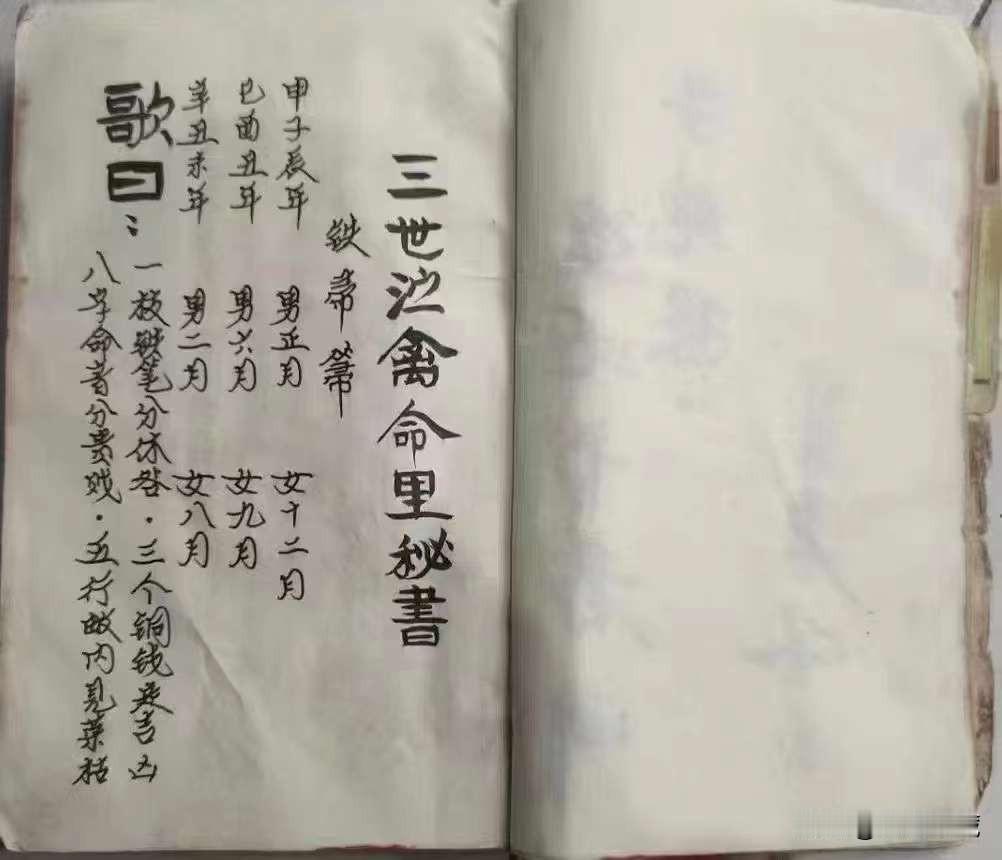 三世江禽命里秘書
铁帚篰
甲子辰年 男正月 女十二月
巳酉丑年 男六月 女九月
辛丑未年 男二月 女八月
歌曰：
一枝铁笔分休咎．三个铜钱定吉凶
八字命者分贵贱．五行内見荣枯